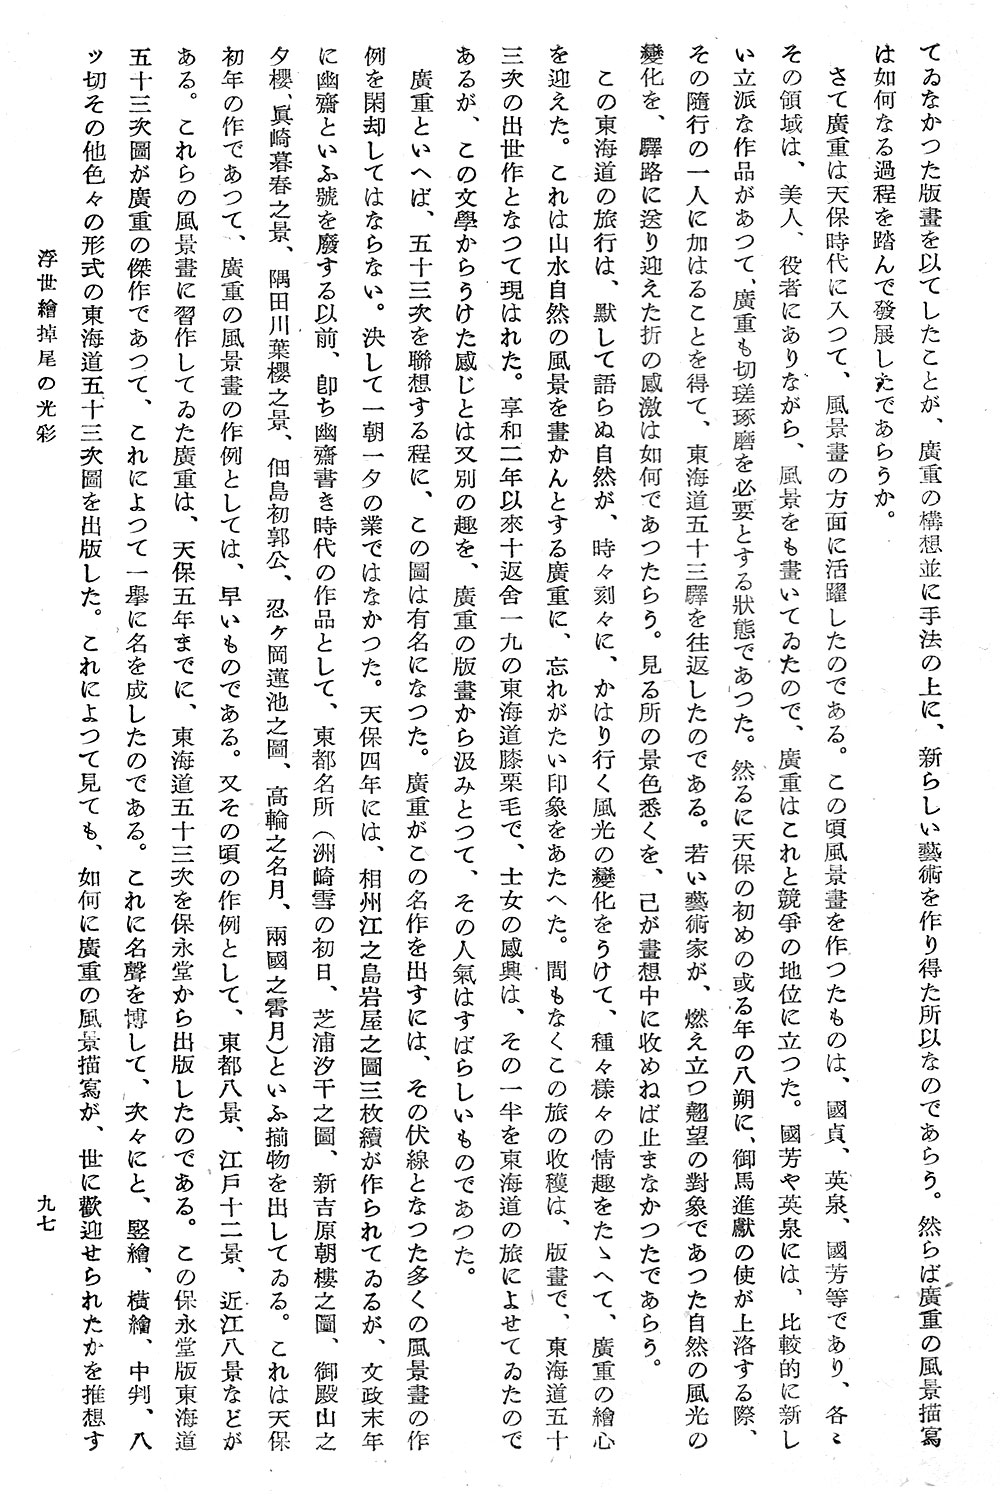 てゐなかつた版畫を以てしたことが、廣重の構想並に手法の上に、新らしい藝術を作り得た所以なのであらう。然らば廣重の風景描寫
は如何なる過程を踏んで發展したであらうか。
さて廣重は天保時代に入つて、風景畫の方面に活躍したのである。この頃風景畫を作つたものは、國貞、英泉、國芳等であり、各〻
その領域は、美人、役者にありながら、風景をも畫いてゐたので、廣重はこれと競爭の地位に立つた。國芳や英泉には、比較的に新し
い立派な作品があつて、廣重も切瑳琢磨を必要とする狀態であつた。然るに天保の初めの或る年の八朔に、御馬進獻の使が上洛する際、
その隨行の一人に加はることを得て、東海道五十三驛を往返したのである。若い藝術家が、燃え立つ翹望の對象であつた自然の風光の
變化を、驛路に送り迎えた折の感激は如何であつたらう。見る所の景色悉くを、己が畫想中に收めねば止まなかつたであらう。
この東海道の旅行は、默して語らぬ自然が、時々刻々に、かはり行く風光の變化をうけて、種々樣々の情趣をたゝへて、廣重の繪心
を迎えた。これは山水自然の風景を畫かんとする廣重に、忘れがたい印象をあたへた。間もなくこの旅の收穫は、版畫で、東海道五十
三次の出世作となつて現はれた。享和二年以來十返舍一九の東海道膝栗毛で、士女の感興は、その一半を東海道の旅によせてゐたので
あるが、この文學からうけた感じとは又別の趣を、廣重の版畫から汲みとつて、その人氣はすばらしいものであつた。
廣重といへば、五十三次を聯想する程に、この圖は有名になつた。廣重がこの名作を出すには、その伏線となつた多くの風景畫の作
例を閑却してはならない。決して一朝一夕の業ではなかつた。天保四年には、相州江之島岩屋之圖三枚續が作られてゐるが、文政末年
に幽齋といふ號を廢する以前、卽ち幽齋書き時代の作品として、東都名所(洲崎雪の初日、芝浦汐干之圖、新吉原朝櫻之圖、御殿山之
夕櫻、眞崎暮春之景、隅田川葉櫻之景、佃島初郭公、忍ケ岡蓮池之圖、高輪之名月、兩國之霄月)といふ揃物を出してゐる。これは天保
初年の作であつて、廣重の風景畫の作例としては、早いものである。又その頃の作例として、東都八景、江戸十二景、近江八景などが
ある。これらの風景畫に習作してゐた廣重は、天保五年までに、東海道五十三次を保永堂から出版したのである。この保永堂版東海道
五十三次圖が廣重の傑作であつて、これによつて一擧に名を成したのである。これに名聲を博して、次々にと、竪繪、橫繪、中判、八
ッ切その他色々の形式の東海道五十三次圖を出版した。これによつて見ても、如何に廣重の風景描寫が、世に歡迎せられたかを推想す
浮世繪掉尾の光彩
九七